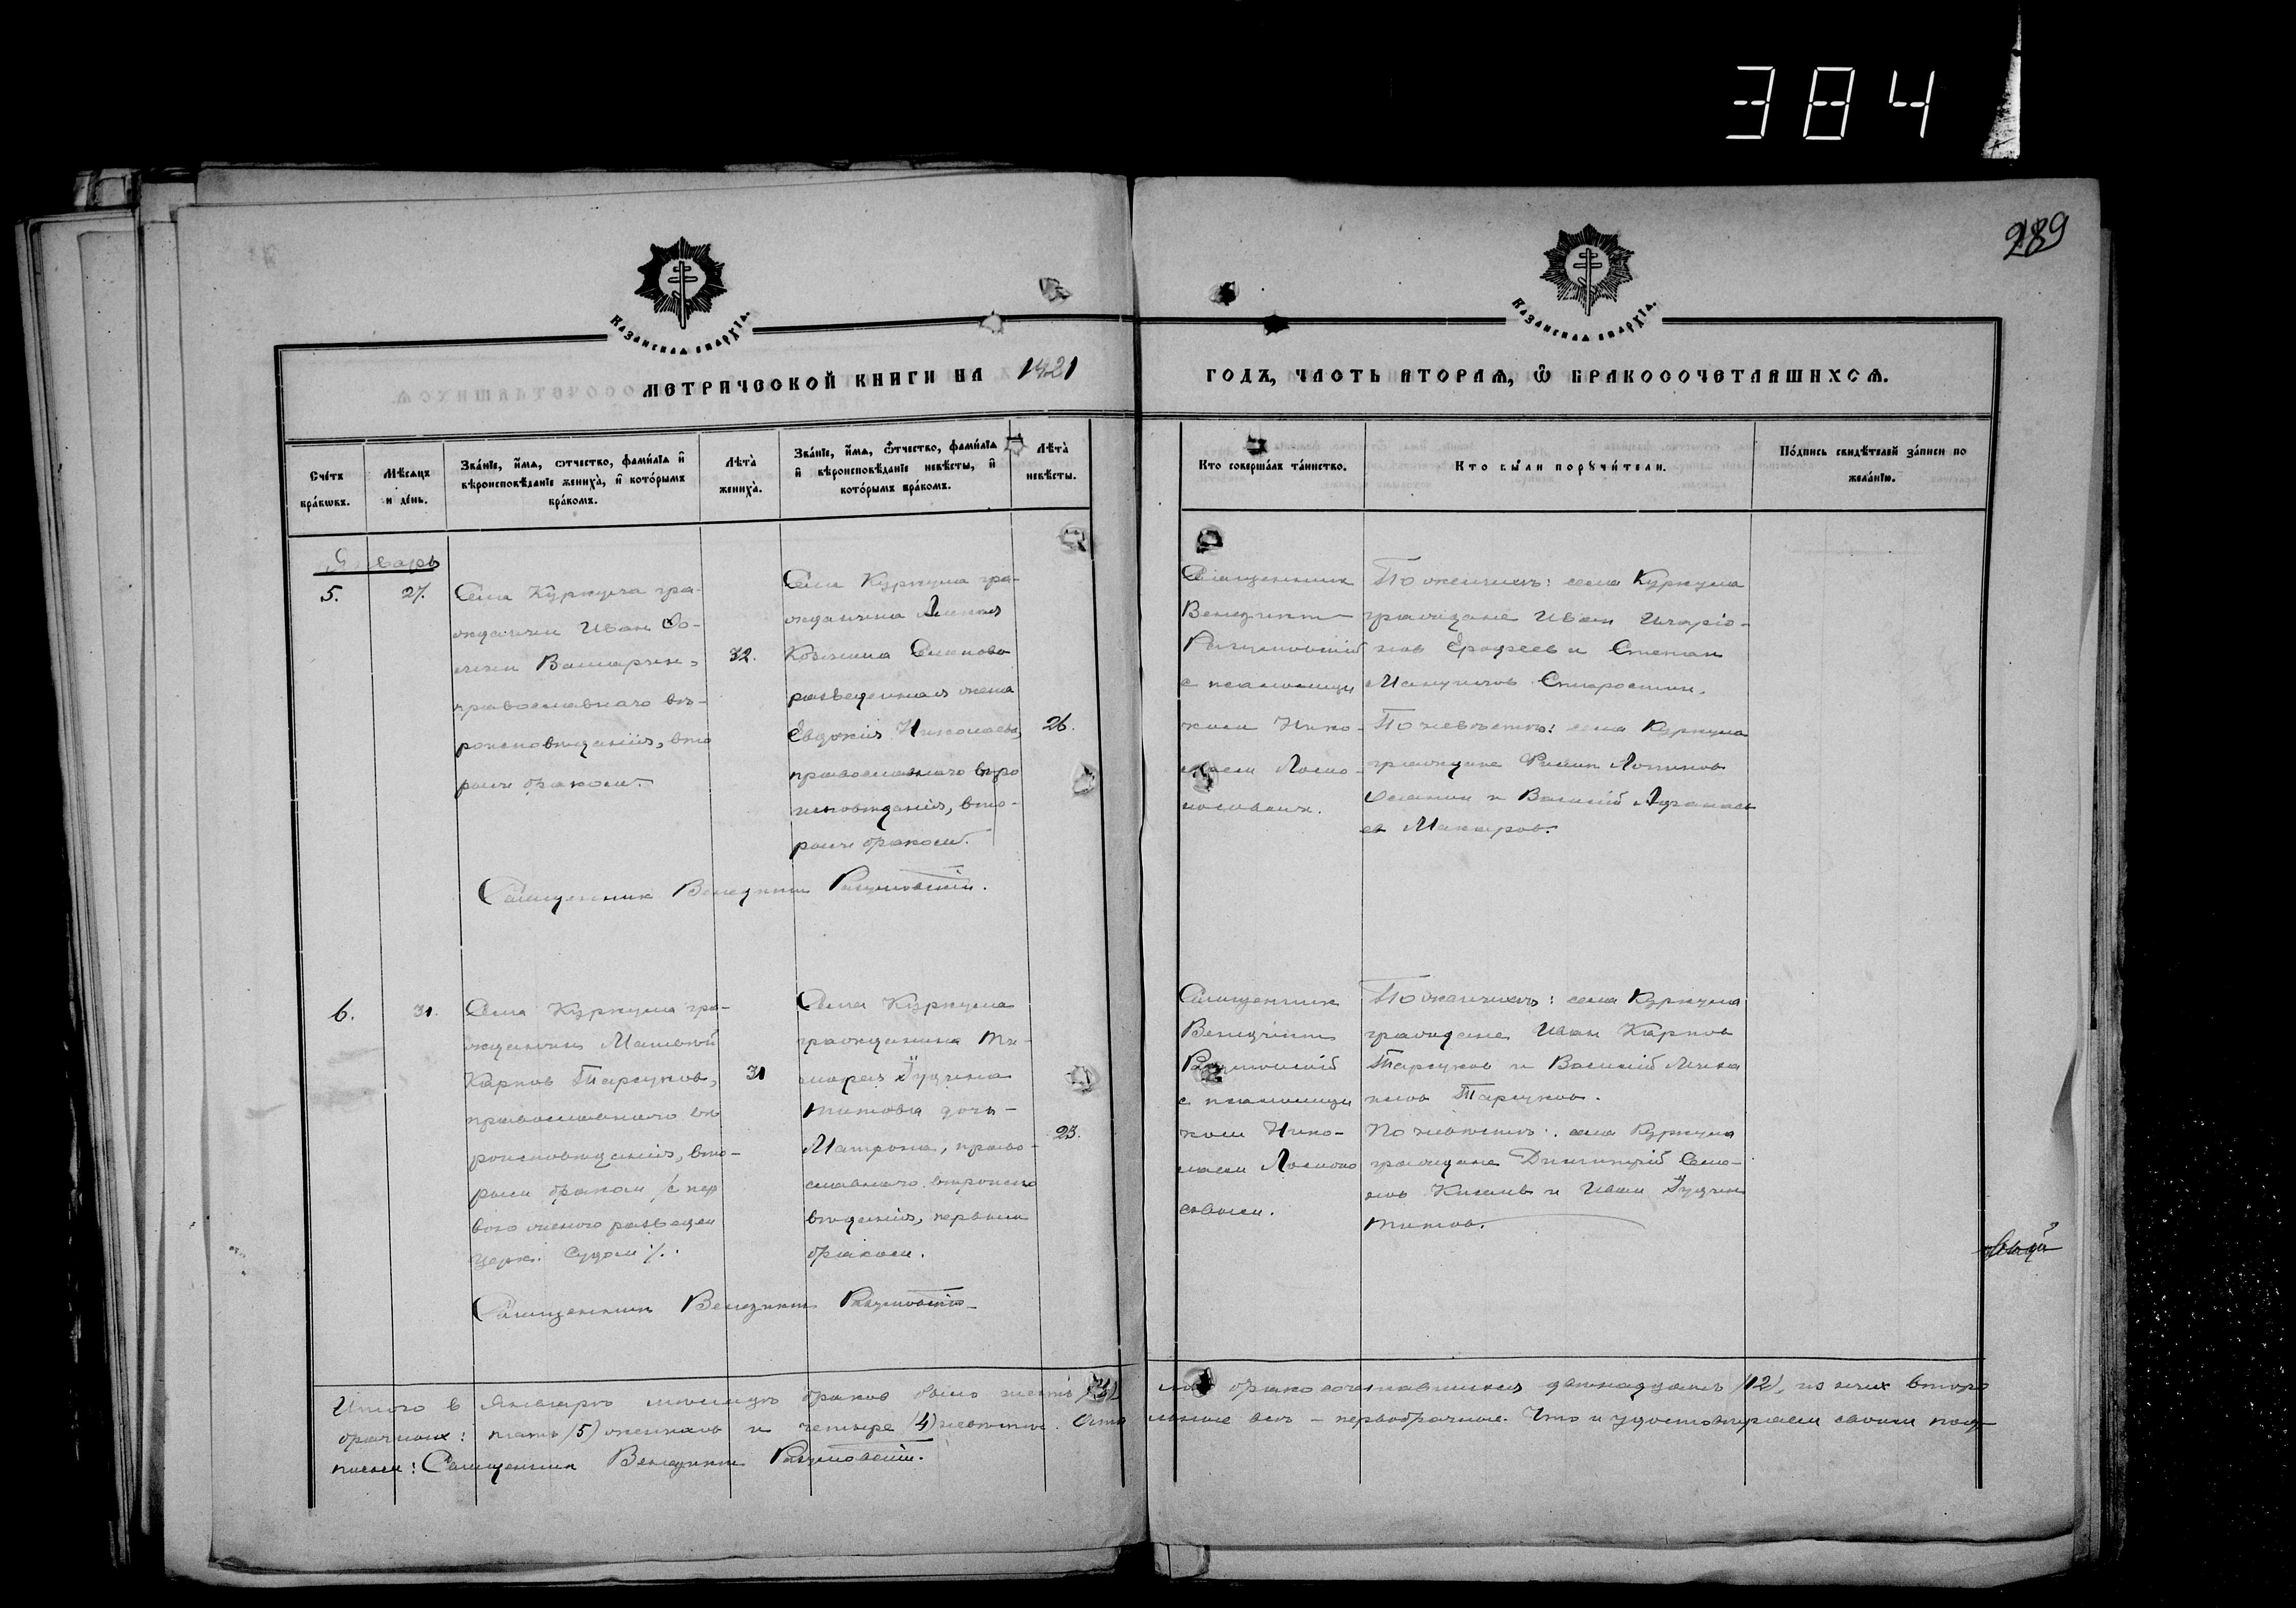 384
289
КАЗАНСКАЯ ЕПАРХІА.
КАЗАНСКАЯ ЕПАРХІА.
МЕТРИЧЕСКОЙ КНИГИ НА 1921
ГОДЪ, ЧАСТЬ ВТОРАЯ, Ѡ БРАКОСОЧЕТАВШИХСЯ.
Счетъ браковъ.
Мѣсяцъ и день.
Званіе, имя, отчество, фамилія и вѣроисповѣданіе жениха, и которымъ бракомъ.
Лѣта жениха.
Званіе, имя, Ѿтчество, фамилія и вѣроисповѣданіе невѣсты, и которымъ бракомъ.
Лѣта невѣсты.
Кто совершалъ таинство.
Кто были поручители.
Подпись свидѣтелей записи по желанію.
Январь
5.
27.
Села Куркуля гра-
жданин Иван
православнаго вѣ-
роисповѣданія, вто
рым браком.
32.
Села Куркула гра-
жданина
Семенова
разведенная жена
Евдокія Николаева,
православнаго вѣро
исповѣданія, вто-
рым браком.
26.
Священник
Венедикт
Разумовскій
с псаломщи
ком Нико-
лаем Ломо-
носовым.
По женихѣ: села Куркула
граждане Иван Иларіо-
нов Ерофеев и Степан
Старостин.
По невѣстѣ: села Куркула
граждане Филип
и Василій Афанась
ев Макаров.
Священник Венедикт Разумовскій.
6.
31.
Села Куркула гра-
жданин Матвей
Карпов Тарсуков,
православнаго вѣ
роисповѣданія, вто-
рым браком /с пер
вою женою разведен
церк. Судом/.
31
Села Куркула
гражданина Ти-
мофея
Титова дочь
Матрона, право-
славнаго вѣроиспо
вѣданія, первым
браком.
23.
Священник
Венедикт
Разумовскій
с псаломщи
ком Нико-
лаем Ломоно
совым.
По женихѣ: села Куркула
граждане Иван Карпов
Тарсуков и Василій
Тарсуков.
По невѣстѣ: села Куркула
граждане Димитрій Семе-
нов и Иван
Титов.
Священник Венедикт Разумовскій
Итого в Январѣ мѣсяцѣ браков было шесть (6), бракосочетавшихся двенадцать (12), из них второ
брачных: пять (5) женихов и четыре (4) невѣсты. Оста льные всѣ - первобрачные. Что и удостовѣряем своим под-
писом: Священник Венедикт Разумовскій.